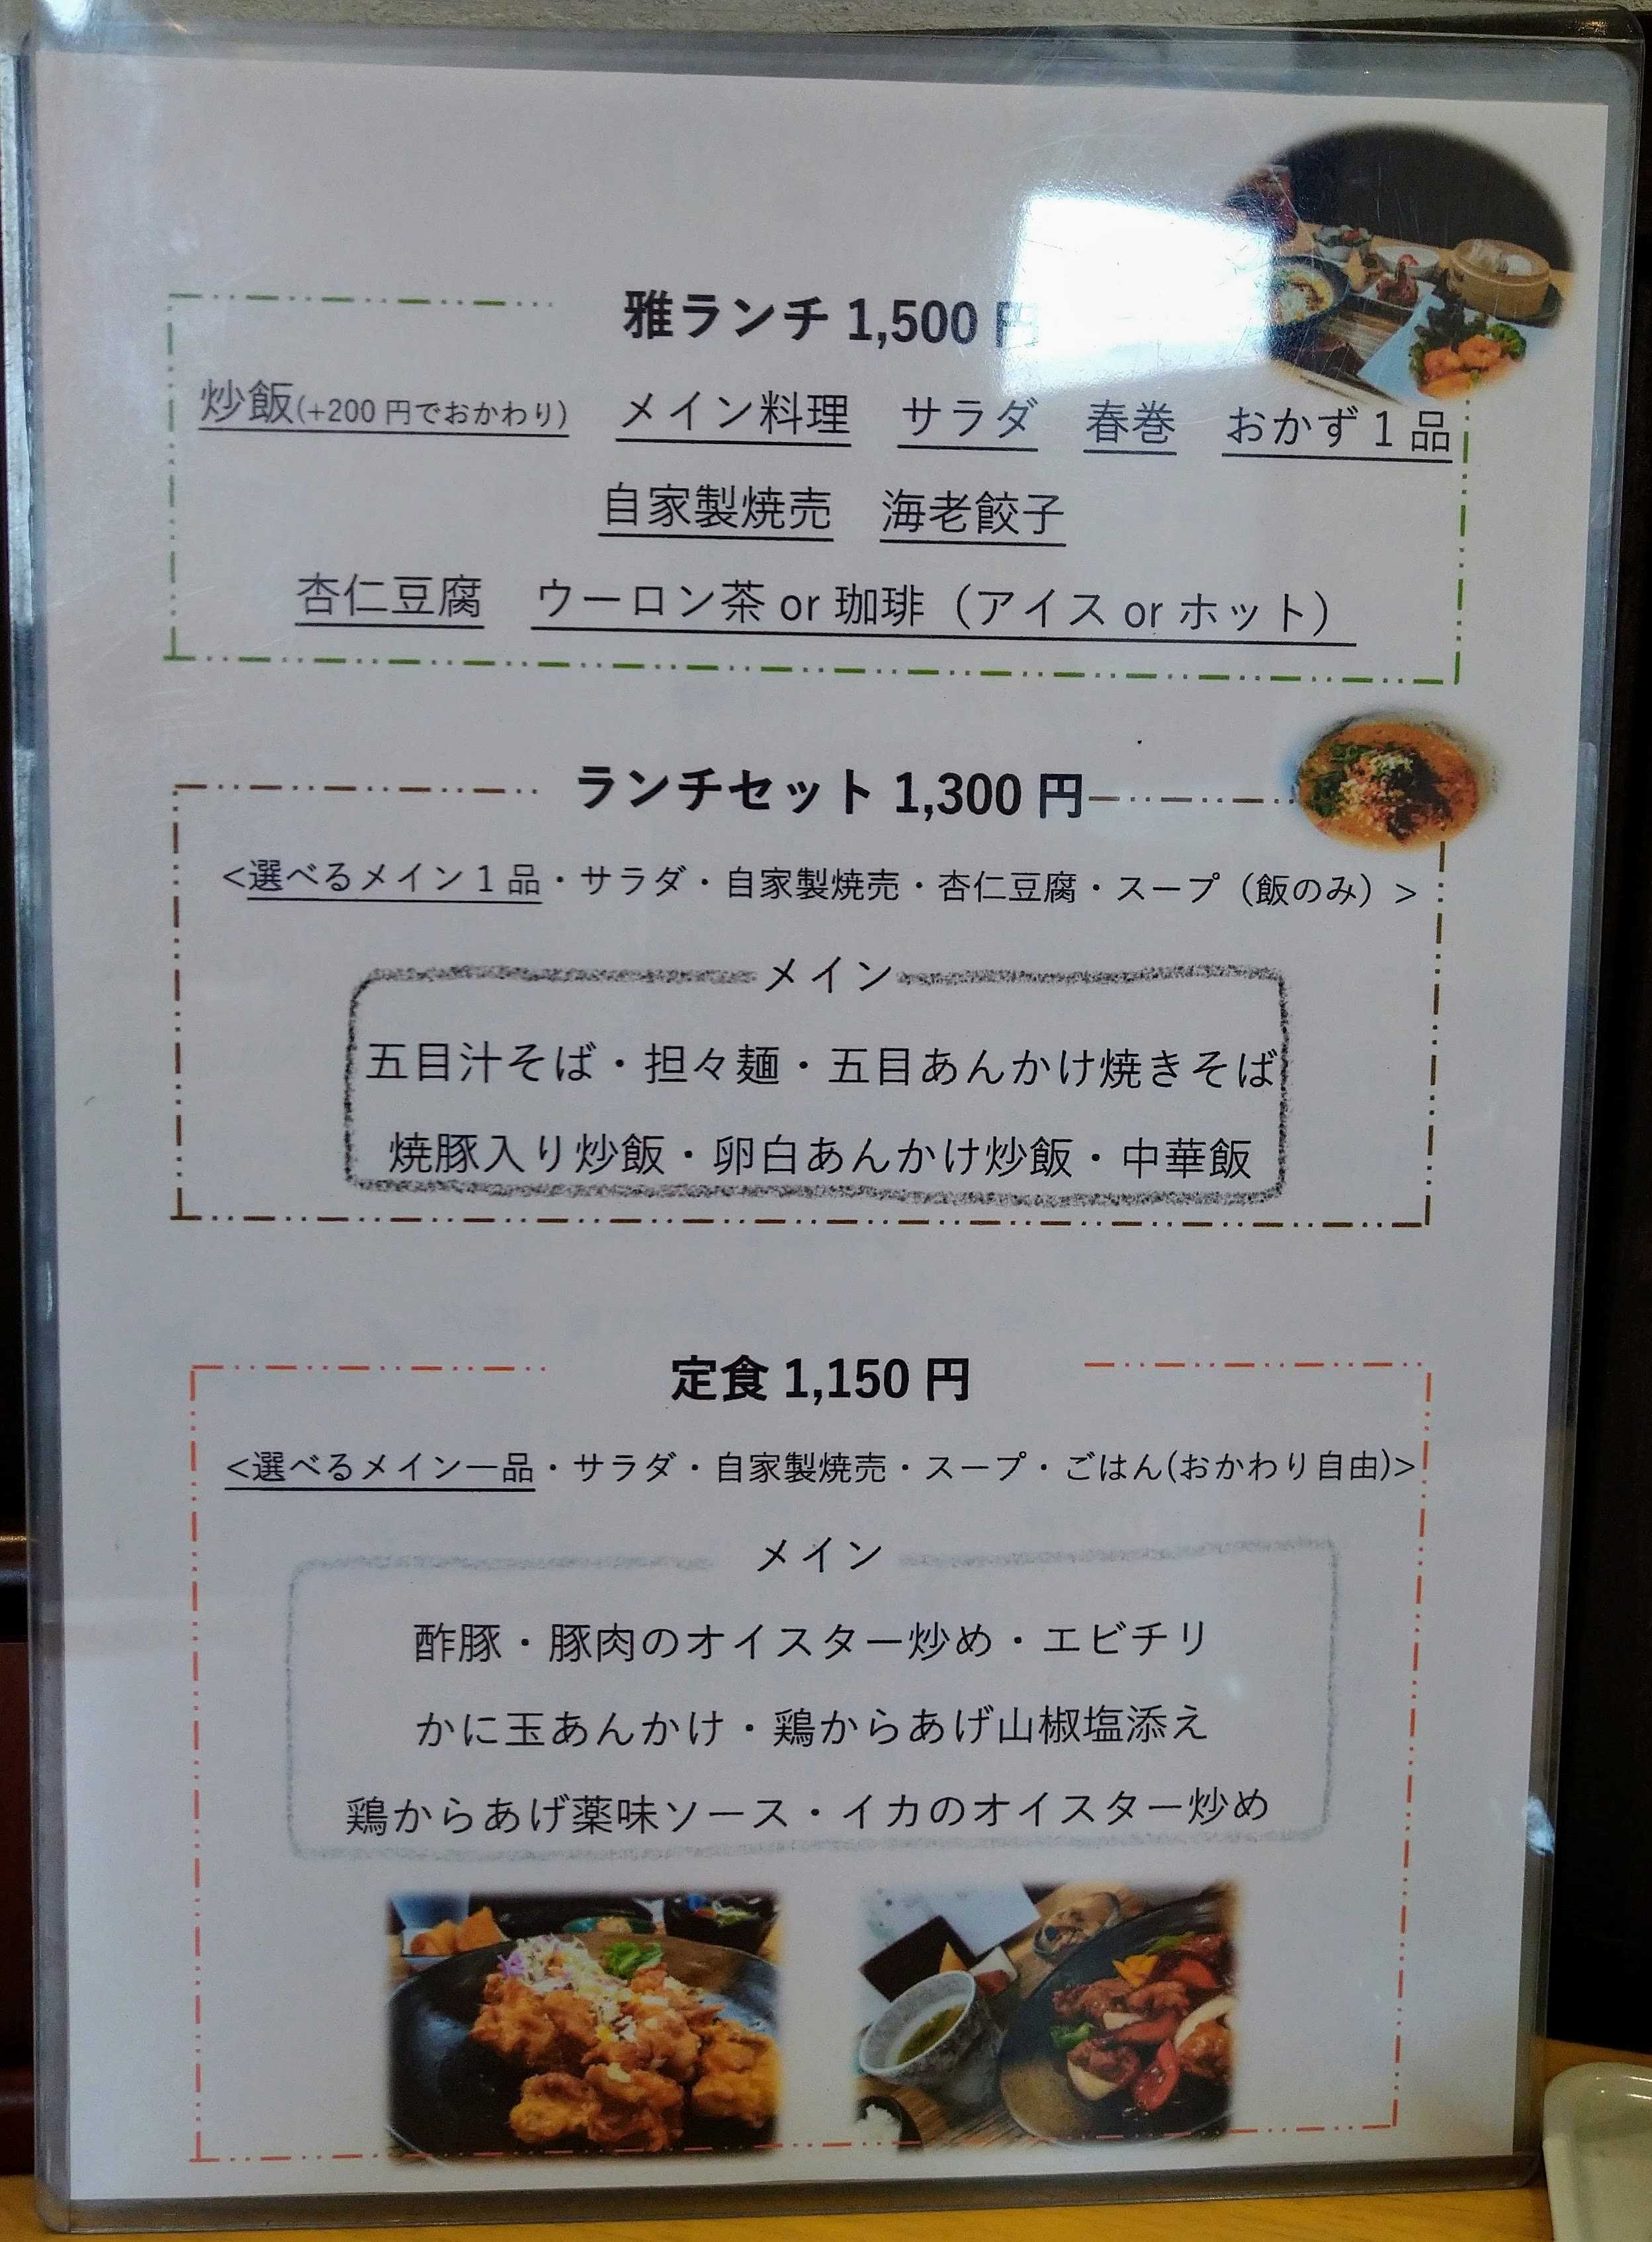 雅ランチ 1,500 円
炒飯(+200 円でおかわり) メイン料理 サラダ 春巻 おかず 1 品
自家製焼売 海老餃子
杏仁豆腐 ウーロン茶 or 珈琲（アイス or ホット）
ランチセット 1,300 円
<選べるメイン 1 品・サラダ・自家製焼売・杏仁豆腐・スープ（飯のみ）>
メイン
五目汁そば・担々麺・五目あんかけ焼きそば
焼豚入り炒飯・卵白あんかけ炒飯・中華飯
定食 1,150 円
<選べるメイン一品・サラダ・自家製焼売・スープ・ごはん(おかわり自由)>
メイン
酢豚・豚肉のオイスター炒め・エビチリ
かに玉あんかけ・鶏からあげ山椒塩添え
鶏からあげ薬味ソース・イカのオイスター炒め